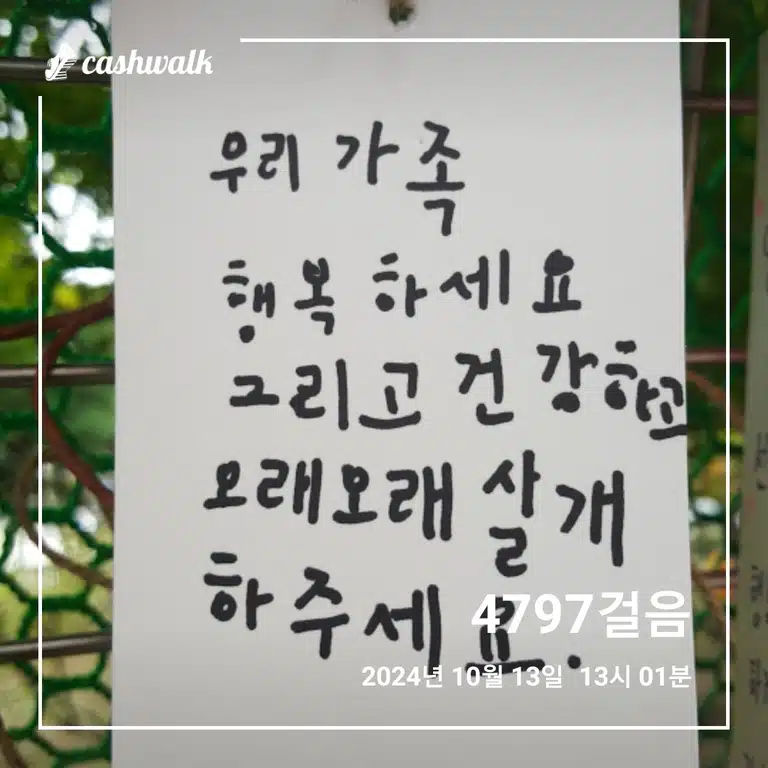 cashwalk
우리 가족
행복 하세요
그리고 건강하고
오래오래 살개
하주세요.
4797걸음
2024년 10월 13일 13시 01분